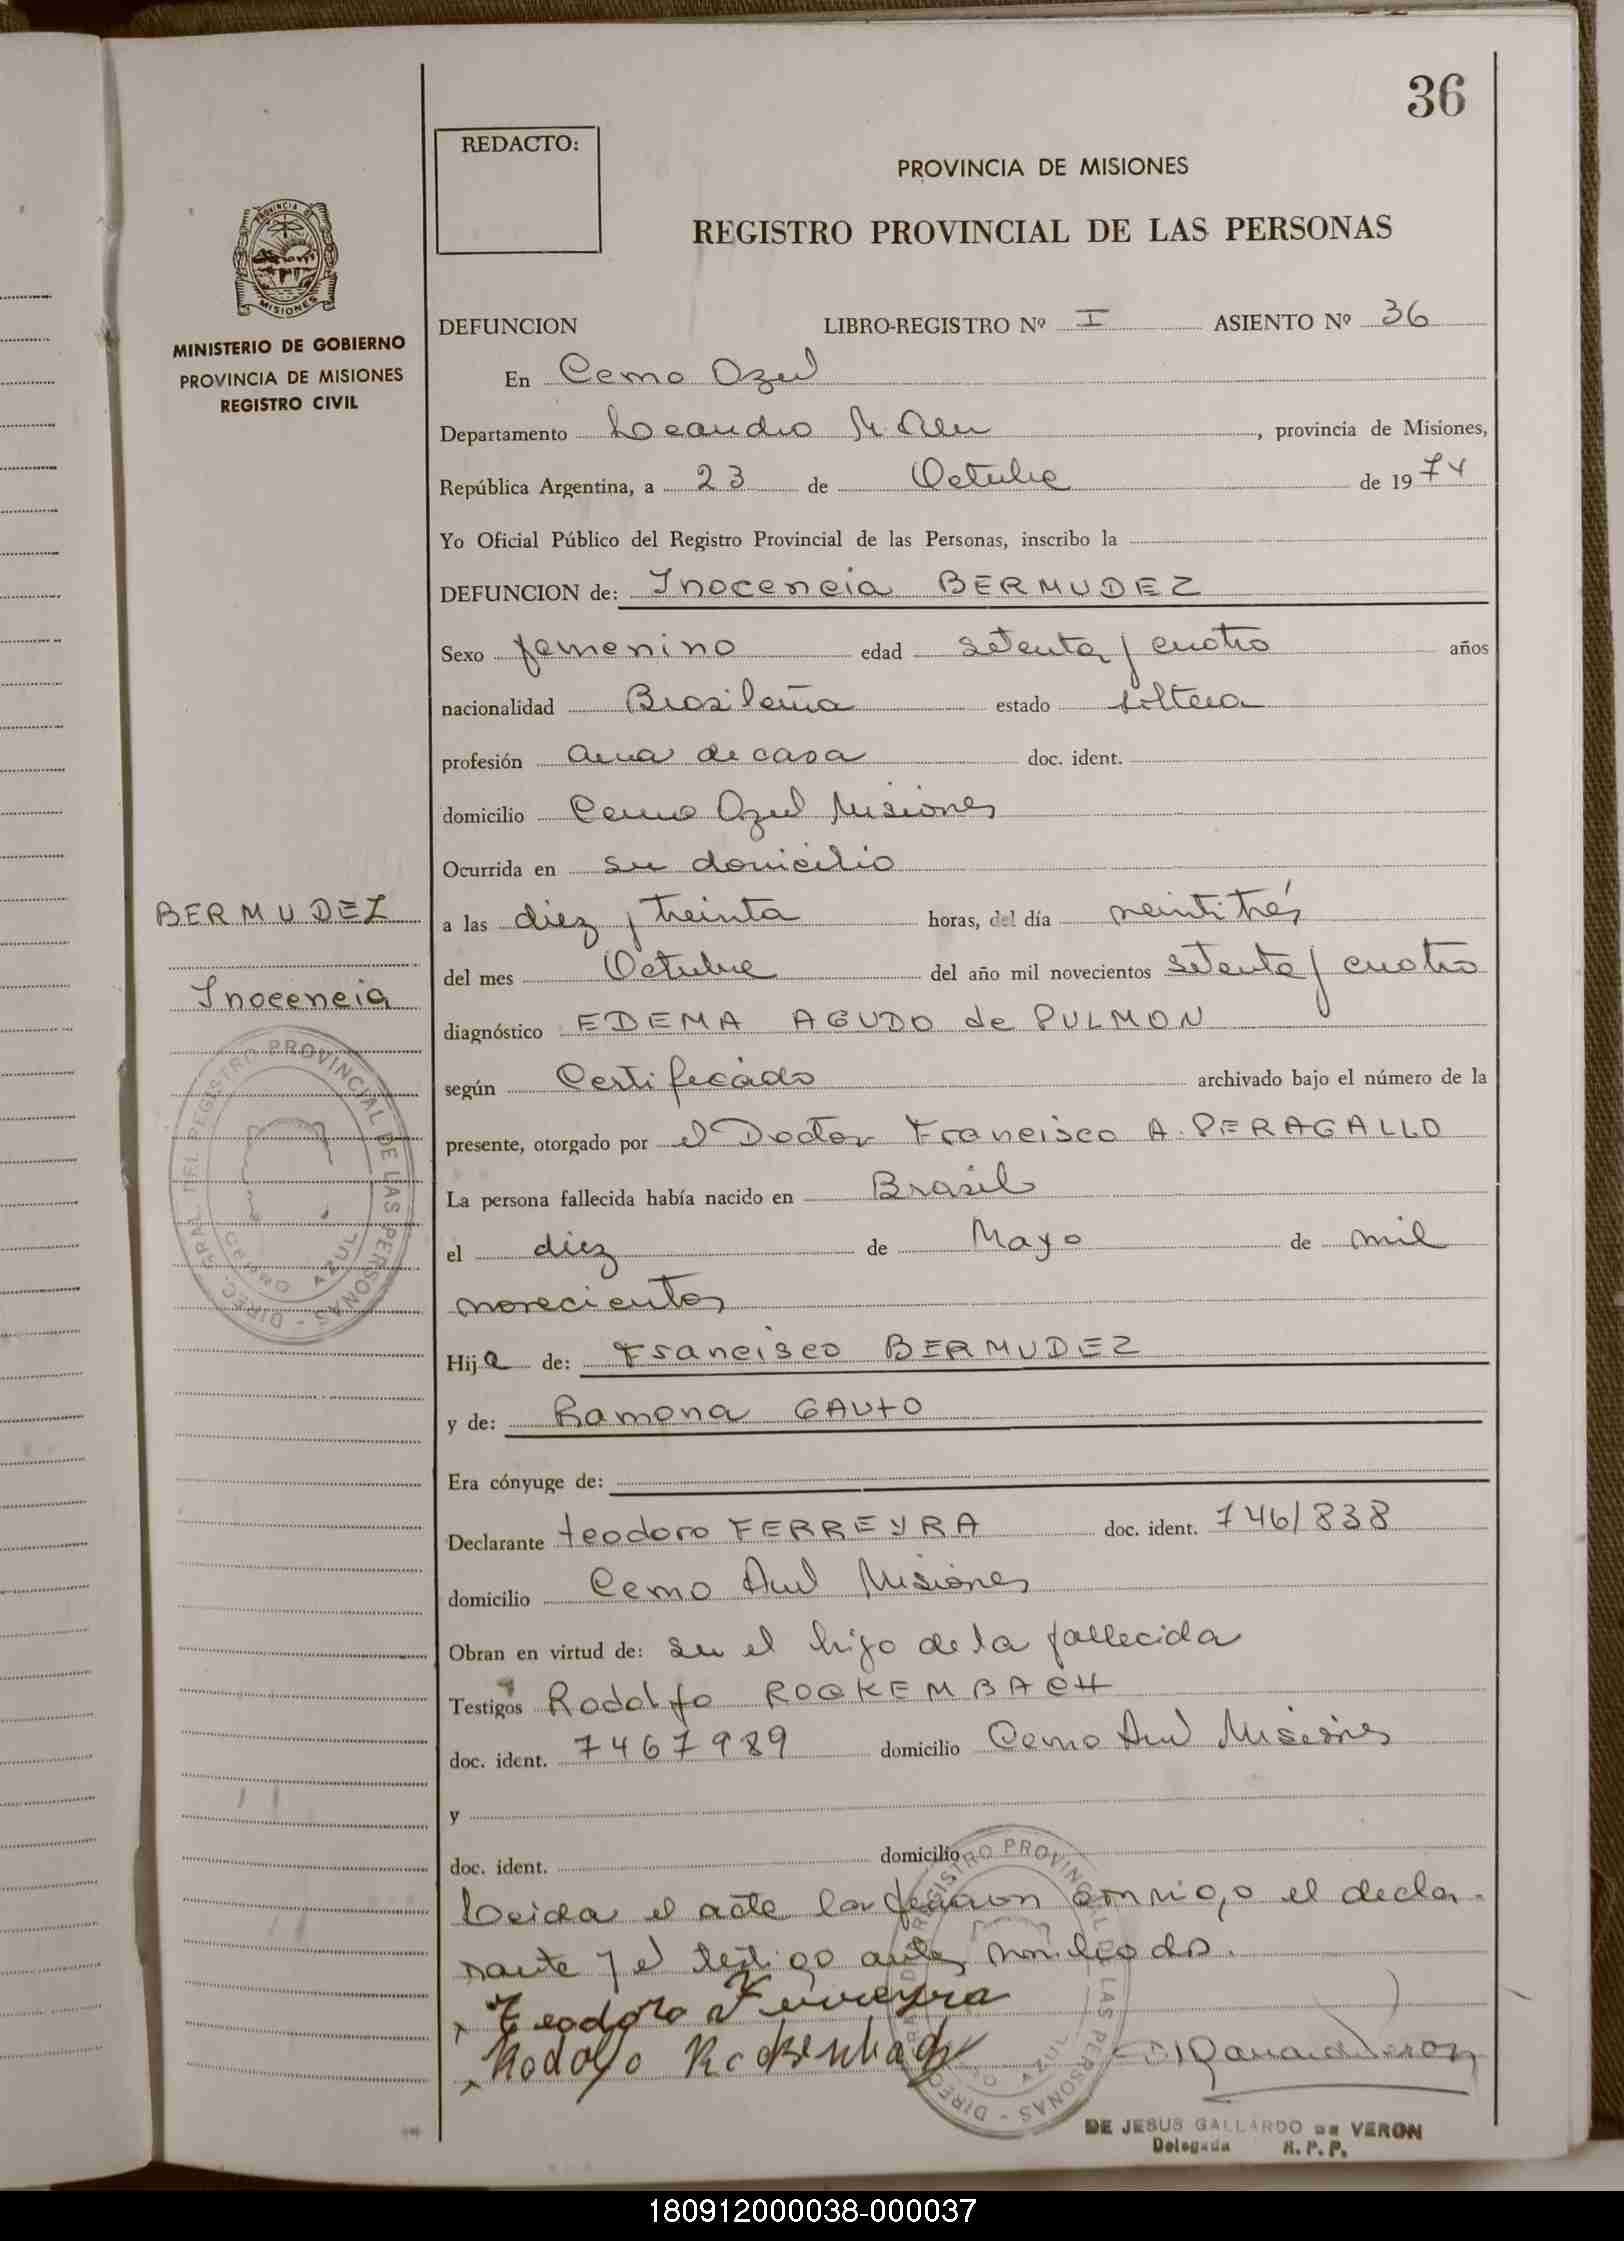 36
REDACTO:
PROVINCIA DE MISIONES
REGISTRO PROVINCIAL DE LAS PERSONAS
PROVINCIA DE
MISIONES
MINISTERIO DE GOBIERNO
PROVINCIA DE MISIONES
REGISTRO CIVIL
DEFUNCION LIBRO-REGISTRO Nº I ASIENTO Nº 36
En Cerro Azul
Departamento Leandro N. Alem, provincia de Misiones,
República Argentina, a 23 de Octubre de 1974
Yo Oficial Público del Registro Provincial de las Personas, inscribo la
DEFUNCION de: Inocencia BERMUDEZ
Sexo femenino edad setenta y cuatro años
nacionalidad Brasileña estado soltera
profesión ama de casa doc. ident.
domicilio Cerro Azul Misiones
Ocurrida en su domicilio
BERMUDEZ
Inocencia
a las diez y treinta horas, del día veintitrés
del mes Octubre del año mil novecientos setenta y cuatro
diagnóstico EDEMA AGUDO de PULMON
según Certificado archivado bajo el número de la
presente, otorgado por el Doctor Francisco A. PERAGALLO
La persona fallecida había nacido en Brasil
el diez de Mayo de mil
novecientos
Hija de: Francisco BERMUDEZ
y de: Ramona GAUTO
Era cónyuge de:
Declarante Teodoro FERREYRA doc. ident. 7461838
domicilio Cerro Azul Misiones
Obran en virtud de: ser el hijo de la fallecida
Testigos Rodolfo ROCKEMBACH
doc. ident. 7467989 domicilio Cerro Azul Misiones
y
doc. ident. domicilio
Leida el acta la firmaron conmigo el decla-
rante y el testigo antes nombrado.
Teodoro Ferreyra
Rodolfo Rockembach
DIREC. GRAL. DEL REGISTRO PROVINCIAL DE LAS PERSONAS
CERRO AZUL
DE JESUS GALLARDO DE VERON
Delegada R.P.P.
180912000038-000037